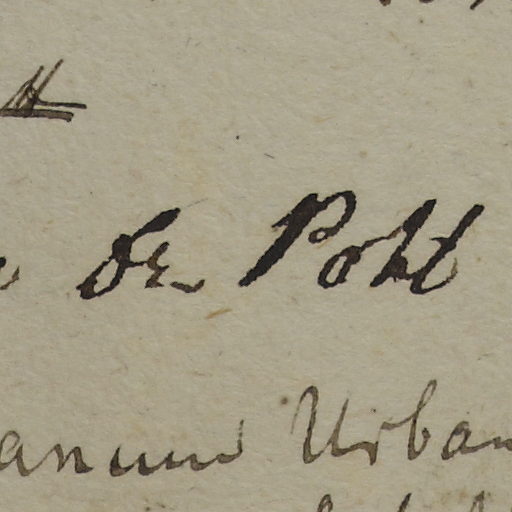 Dr Pohl
anum Urban